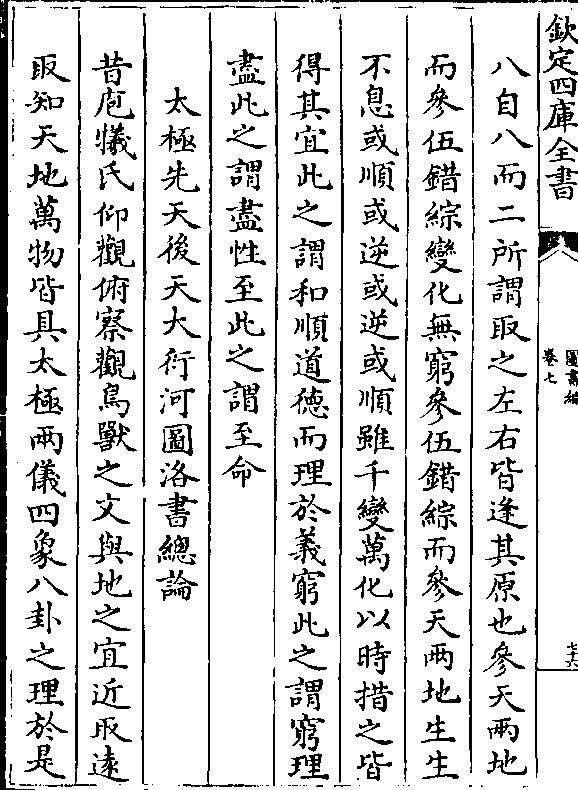 欽定四庫全書
圖書編
卷七
七六
八自八而二所謂取之左右皆逢其原也參天兩地
而參伍錯綜變化無窮參伍錯綜而參天兩地生生
不息或順或逆或逆或順雖千變萬化以時措之皆
得其宜此之謂和順道德而理於義窮此之謂窮理
盡此之謂盡性至此之謂至命
太極先天後天大衍河圖洛書總論
昔庖犧氏仰觀俯察觀鳥獸之文與地之宜近取遠
取知天地萬物皆具太極兩儀四象八卦之理於是